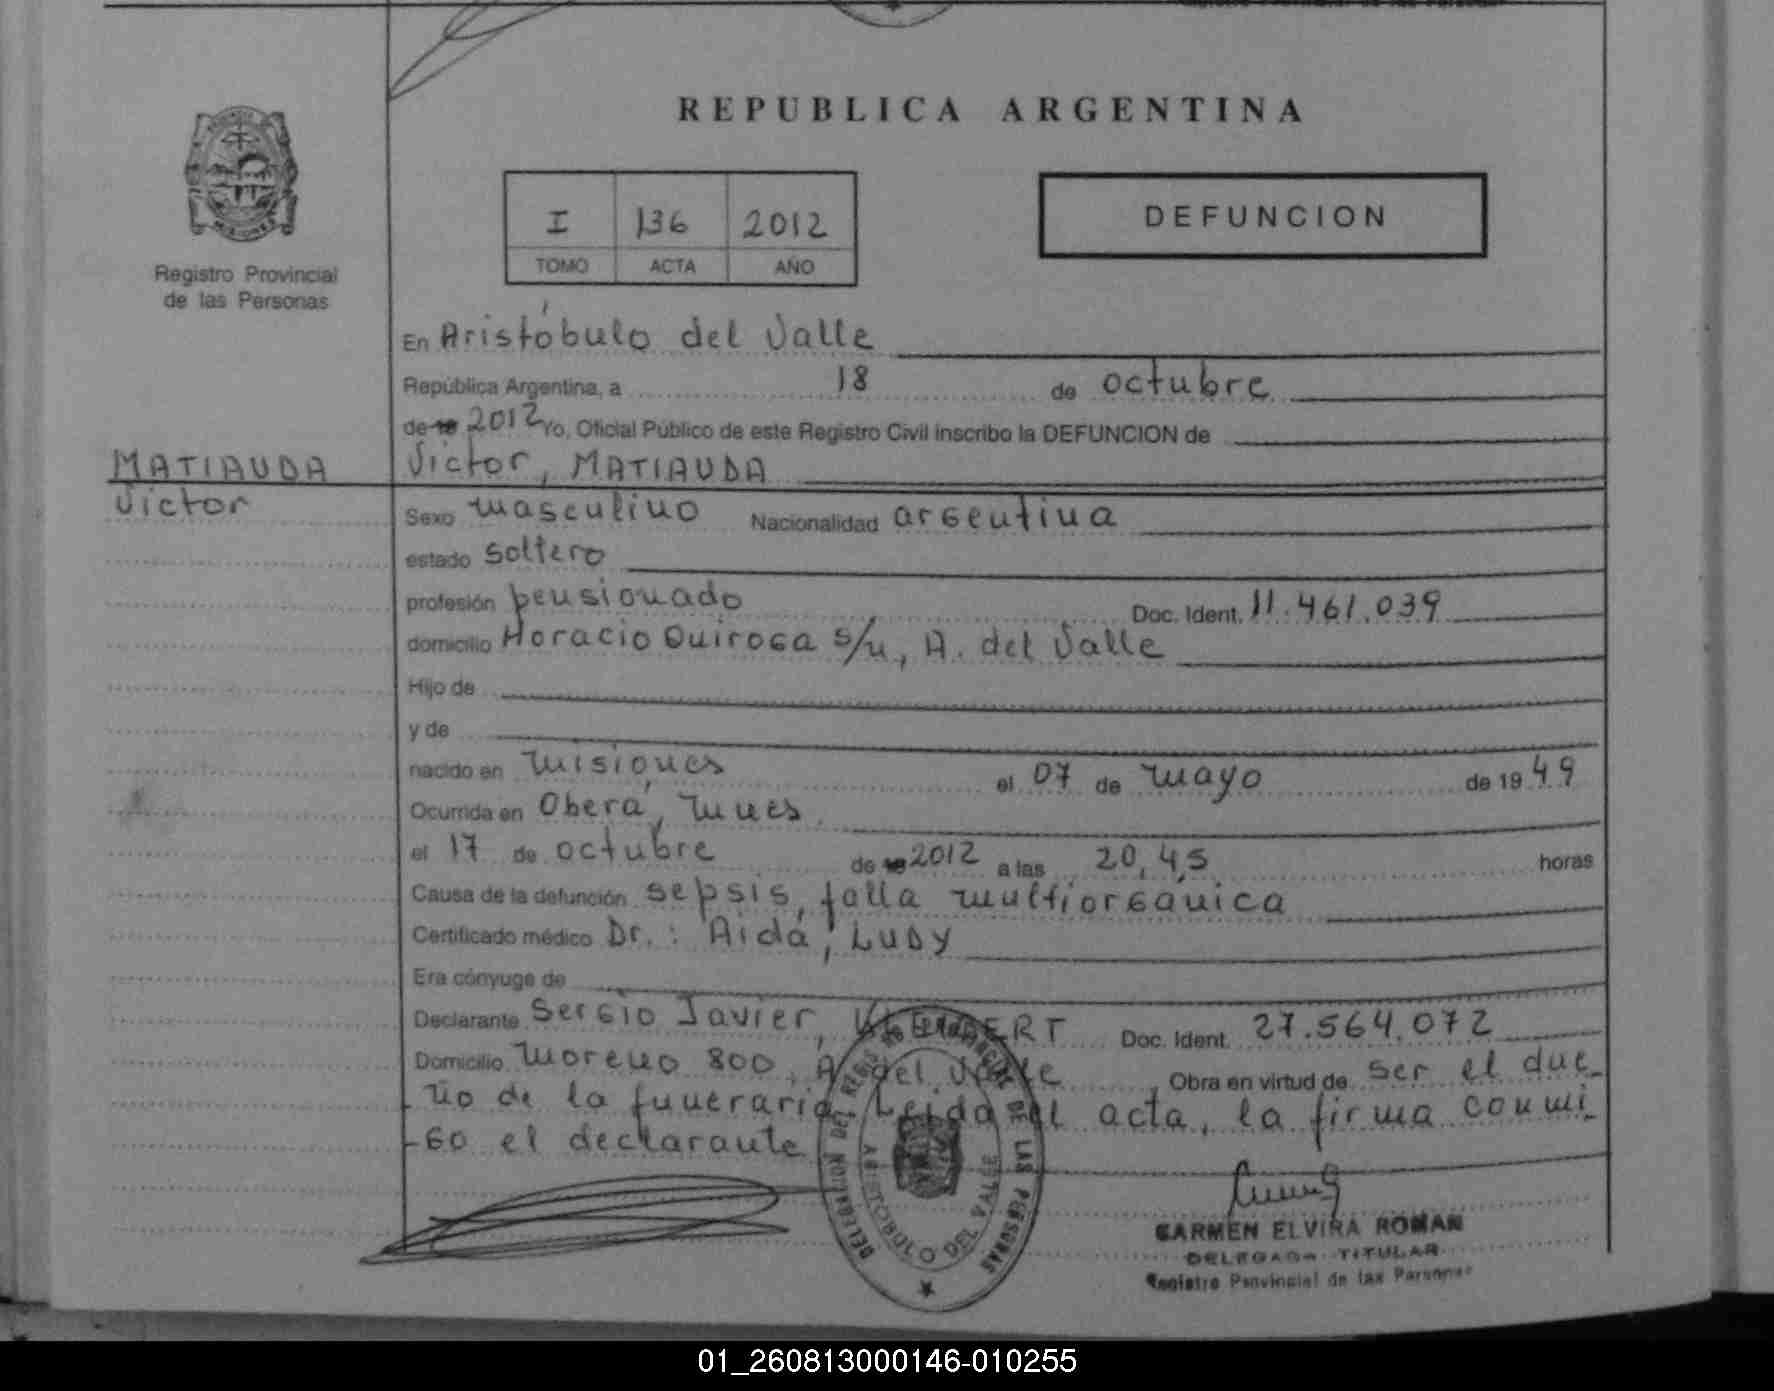 REPUBLICA ARGENTINA
MISIONES
Registro Provincial
de las Personas
I 136 2012
TOMO ACTA AÑO
DEFUNCION
En Aristóbulo del Valle
República Argentina, a 18 de octubre
de 19 2012 Yo, Oficial Público de este Registro Civil inscribo la DEFUNCION de
MATIAUDA
Victor
Victor, MATIAUDA
Sexo masculino Nacionalidad argentina
estado soltero
profesión pensionado Doc. Ident. 11.461.039
domicilio Horacio Quiroga s/n, A. del Valle
Hijo de
y de
nacido en misiones el 07 de mayo de 1949
Ocurrida en Oberá, mnes
el 17 de octubre de 19 2012 a las 20,45 horas
Causa de la defunción sepsis, falla multiorgánica
Certificado médico Dr.: Aida, LUDY
Era cónyuge de
Declarante Sergio Javier, Doc. Ident. 27.564.072
Domicilio Moreno 800, A. del Valle Obra en virtud de ser el due-
ño de la funeraria. Leída el acta, la firma conmi-
go el declarante
DELEGACION DEL REGISTRO PROVINCIAL DE LAS PERSONAS
ARISTOBULO DEL VALLE
CARMEN ELVIRA ROMAN
DELEGADA TITULAR
Registro Provincial de las Personas
01_260813000146-010255